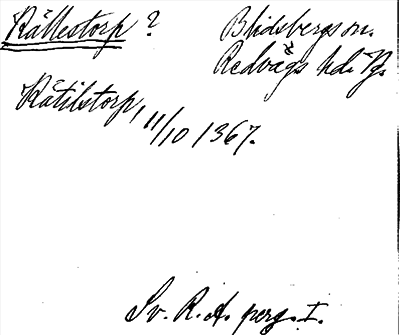 Källestorp ? Blidsbergs sn.
Redvägs hd. Vg.
Kätilstorp, 11/10 1367.
Sv. R. A. perg. I.